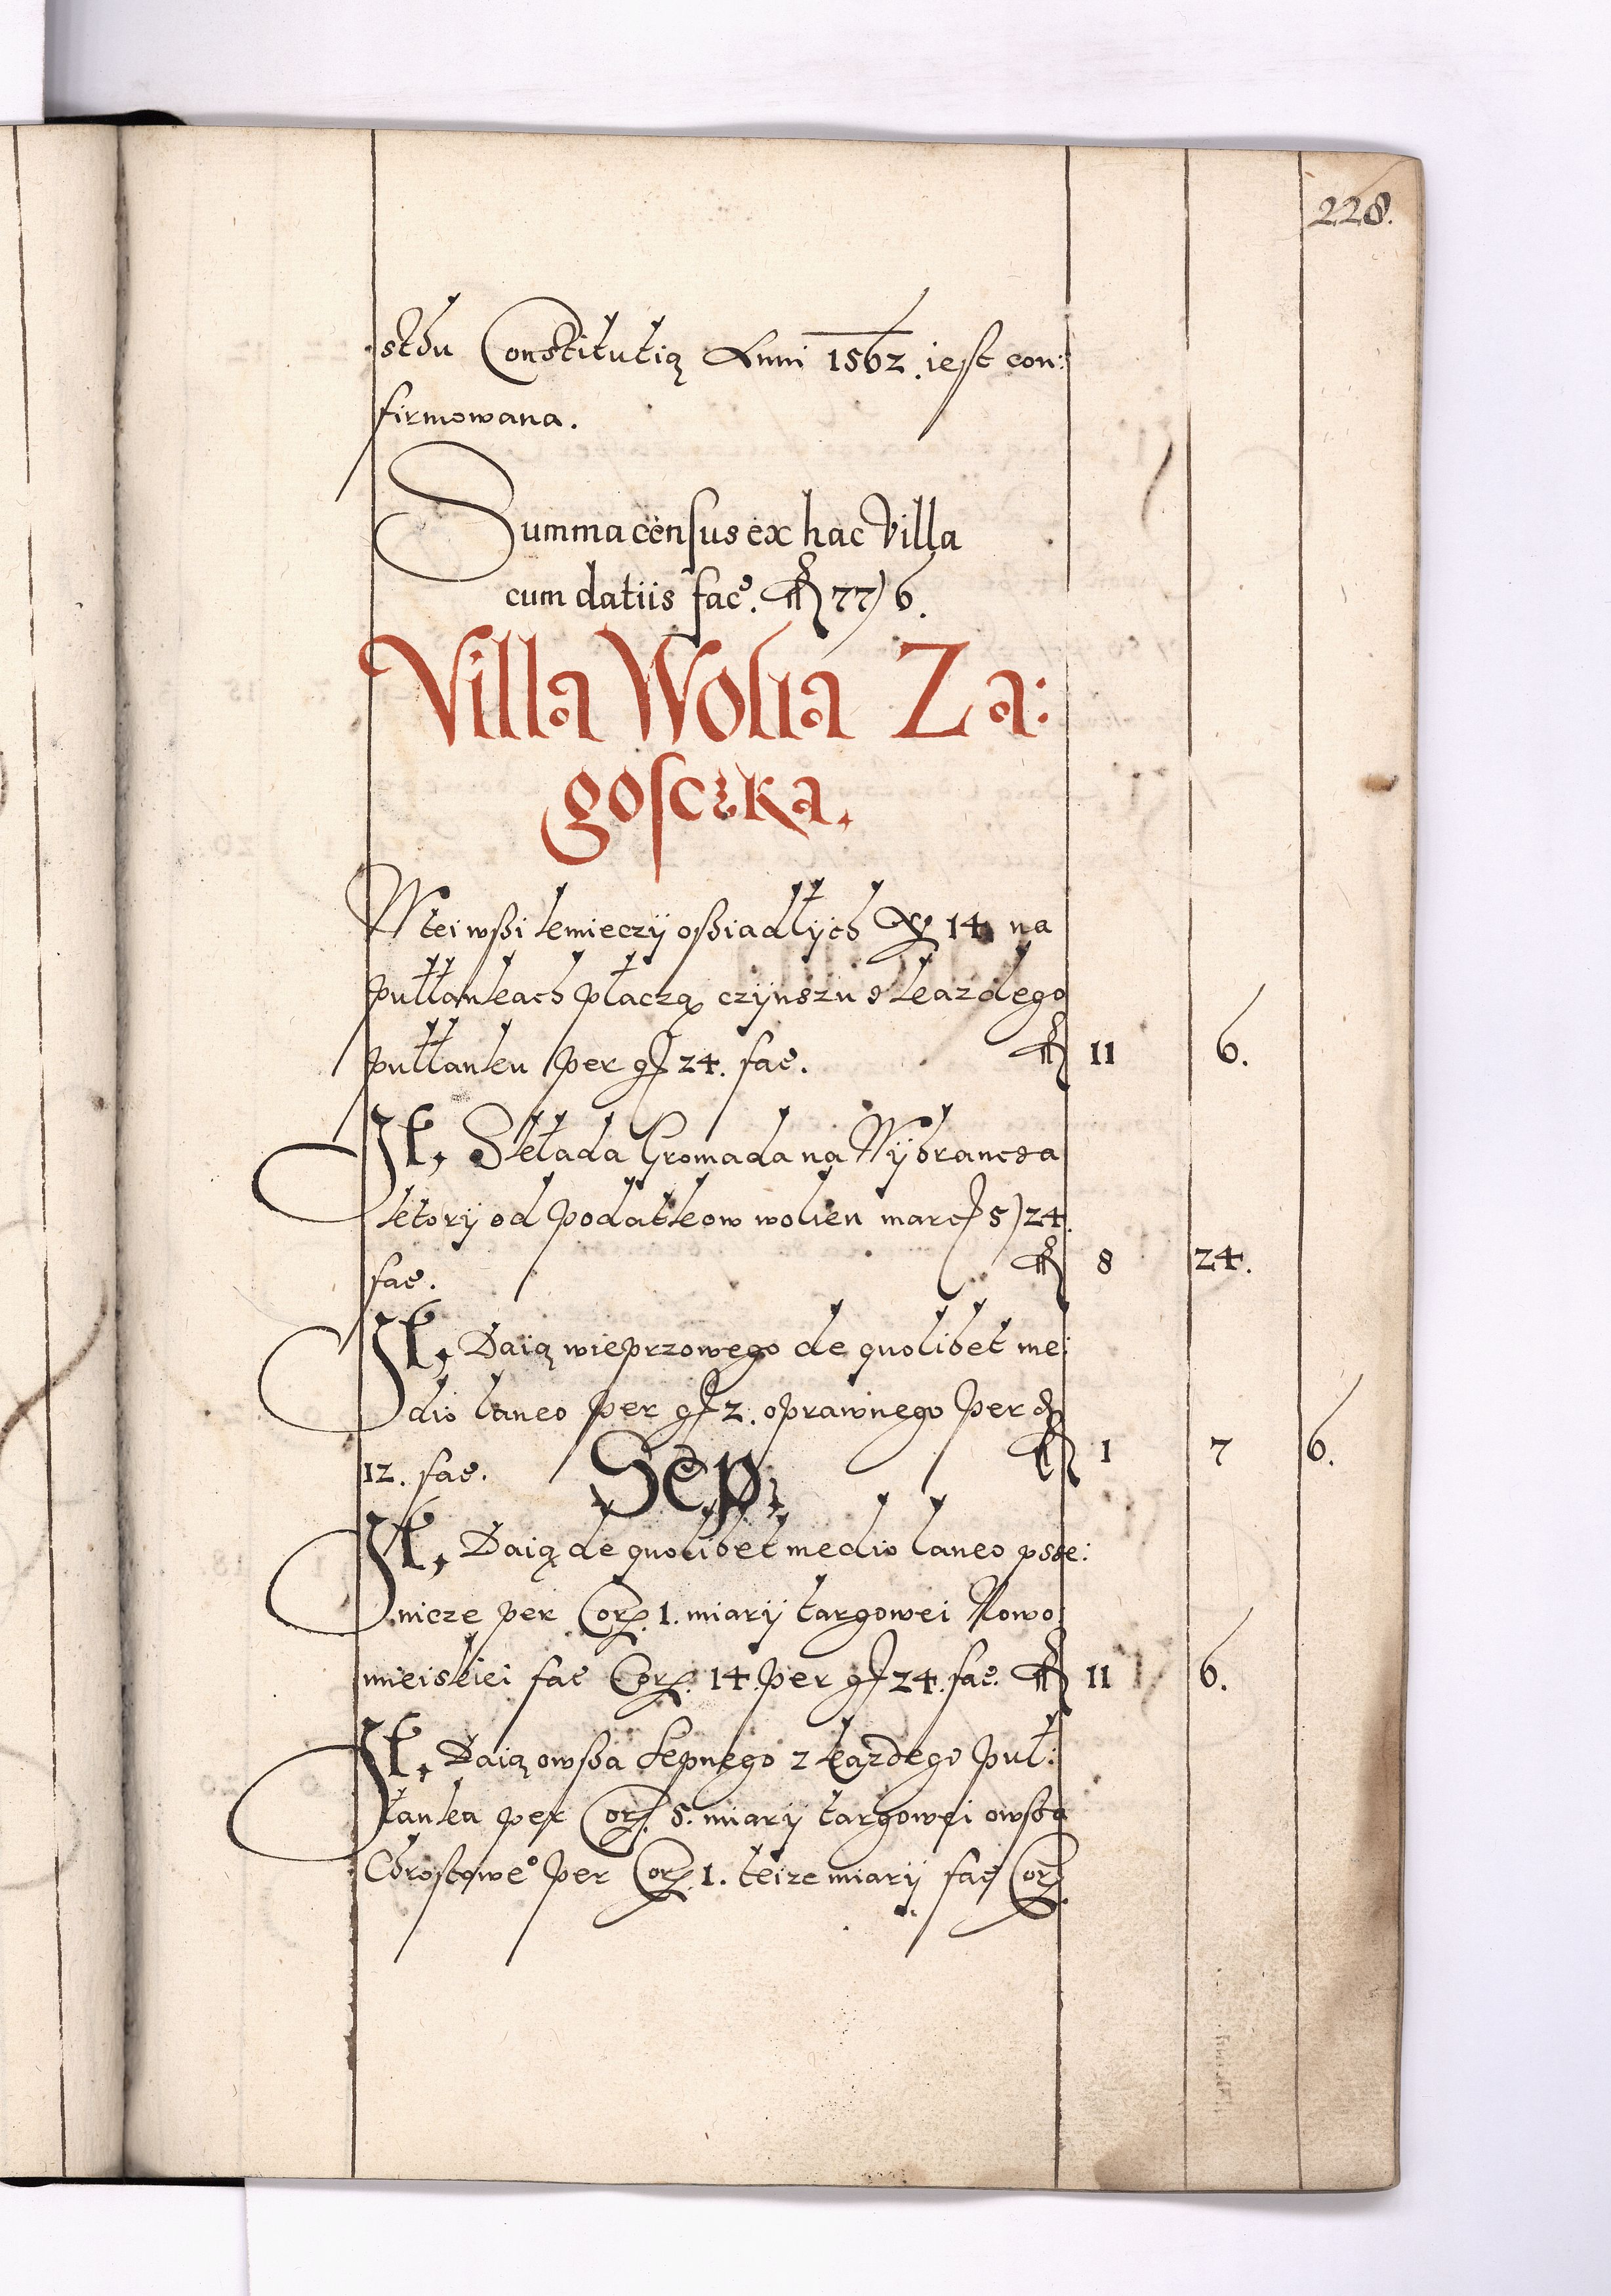 228.
sthu Constitutią Anni 1562. iest con:
firmowana.
Summa census ex hac Villa
cum datiis fac. fl 77) 6.
Villa Wolia Za:
gosczka.
W tei wsßi kmieczij osßiadłijch 14 na
pułłankach płaczą czijnszu s każdego
pułłanku per gr 24. fac. fl 11 6.
It, Składa Gromada na Wijbrancza
ktorij od podatkow wolien marc 5) 24
fac. fl 8 24.
It, Daią wieprzowego de quolibet me:
dio laneo per gr 2. oprawnego per d
12. fac. fl 1 7 6.
Sep,
It, Daią de quolibet medio laneo psze:
nicze per Cor. 1. miarij targowei Nowo
mieiskiei fac Cor. 14. per gr 24. fac. fl 11 6.
It, Daią owsßa sepnego z każdego puł:
łanka per Cor. 5. miarij targowei owsßa
Chrostowe° per Cor. 1. teize miarij fac Cor.